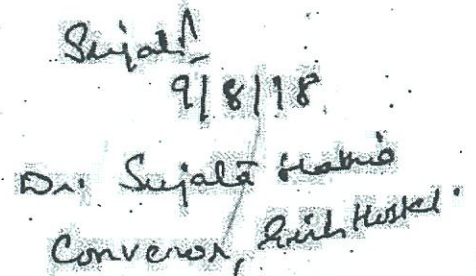 Sujata
9/8/18
Dr. Sujata
Convenor, Girls Hostel.